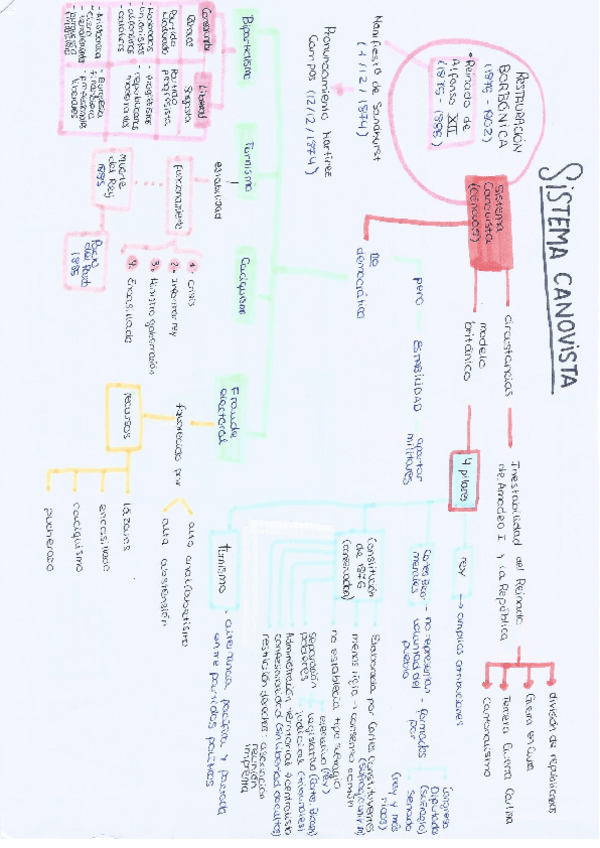 SISTEMA CANOVISTA
RESTAURACIÓN
BORBÓNICA
(1875 - 1902)
• Reinado de
Alfonso XII
(1875 - 1885)
Manifiesto de Sandhurst
(1/12/1874)
Pronunciamiento Martínez
Campos (12/12/1874)
Sistema
Canovista
(Cánovas)
circustancias
Inestabilidad del Reinado
de Amadeo I y la República
división de republicanos
Guerra en Cuba
Tercera Guerra Carlina
cantonalismo
modelo
británico
4 pilares
rey
→ amplias atribuciones
Cortes Bicamerales
- no representan
voluntad del
pueblo
- formadas
por
Congreso
Diputados
(sufragio)
Senado
(rey y más
ricos)
Constitución
de 1876
(conservadora)
Elaborada por Cortes Constituyentes
menos rígida → consenso común
no establecía tipo sufragio
separación
poderes
legislativo
ejecutivo (rey)
judicial (tribunales)
Administración territorial centralista
confesionalidad (sin libertad de cultos)
restricción derechos: asociación
reunión
imprenta
turnismo
• alternancia pacífica y pactada
entre partidos políticos
no
democrático
pero
ESTABILIDAD
apartar
militares
Bipartidismo
Conservador
Liberal
Cánovas
Sagasta
Partido
Partido
progresista
- Moderados
- unionistas
- católicos
- progresistas
- republicanos
moderados
- Aristocracia
- clero
- terratenientes
- burguesía
- Burguesía
financiera
- profesionales
liberales
Turnismo
estabilidad
funcionamiento
1. crisis
2. Informar rey
3. Ministro gobernación
4. Encasillado
muerte
del Rey
1885
Pacto
del Pardo
(1885)
Caciquismo
Fraude
electoral
favorecido por
alto analfabetismo
alta abstención
recursos
lázaros
encasillado
caciquismo
pucherazo